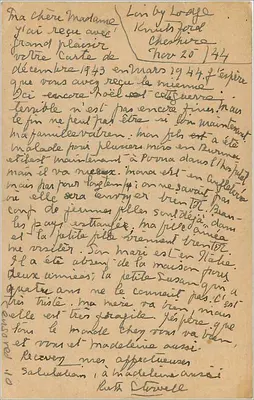 Ma chère Madame
Longby Lodge
Knutsford
Cheshire
Nov 20/44
j'ai reçu avec
grand plaisir
votre Carte de
décembre 1943 en mars 1944, j'espère
que vous avez reçu la mienne.
Ici encore Noël et cette guerre
terrible n'est pas encore finie. Mais
la fin ne peut pas être si loin maintenant.
ma famille va bien. mon fils a été
malade pour plusieurs mois en Burma
et il est maintenant à Poona dans l'hôpital
mais il va mieux. mona est en Angleterre
mais pas pour longtemps; on ne savait pas
où elle sera envoyée bientôt. Beau-
coup de jeunes filles sont déjà dans
les pays étrangers. ma fille aînée
et la petite fille viennent bientôt
me visiter. Son mari est en Italie
Il a été absent de la maison pour
deux années; la petite Susan qui a
quatre ans ne le connait pas. C'est
très triste. ma mère va bien, mais
elle est très fragile. J'espère que
tous le monde chez vous va bien,
et vous et madeleine aussi.
Recevez mes affectueuses
salutations, à madeleine aussi
Ruth Stowell